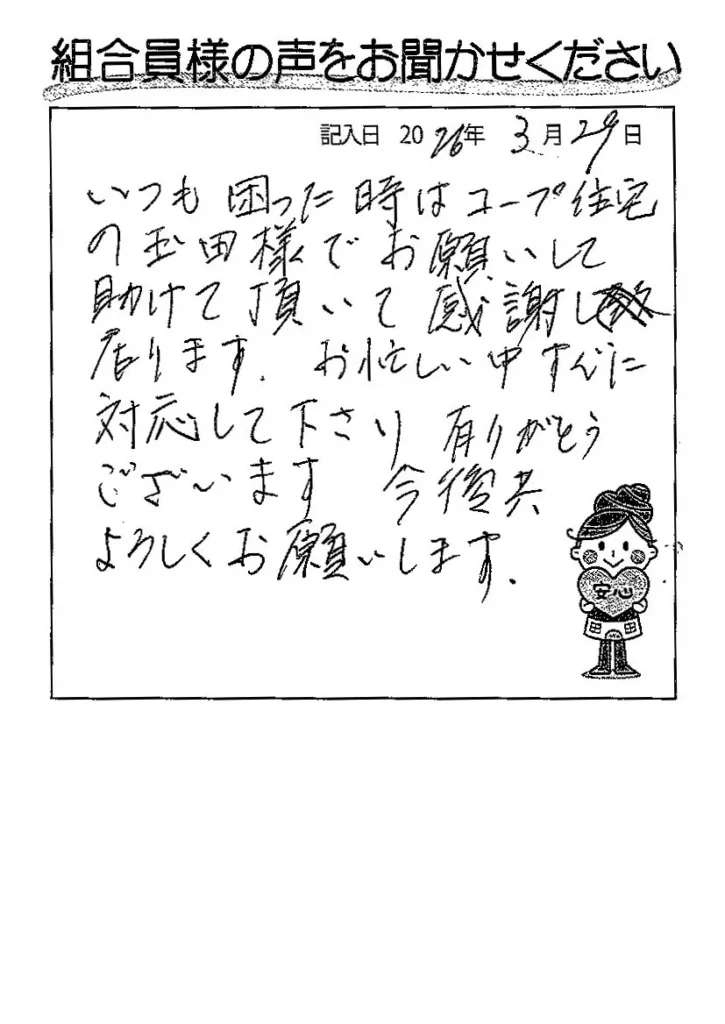 組合員様の声をお聞かせください
記入日 2026年 3月29日
いつも 困った時はコープ住宅
の玉田様で お願いして
助けて頂いて 感謝し
居ります. お忙しい中すぐに
対応して下さり 有りがとう
ございます 今後共
よろしくお願いします.
安心